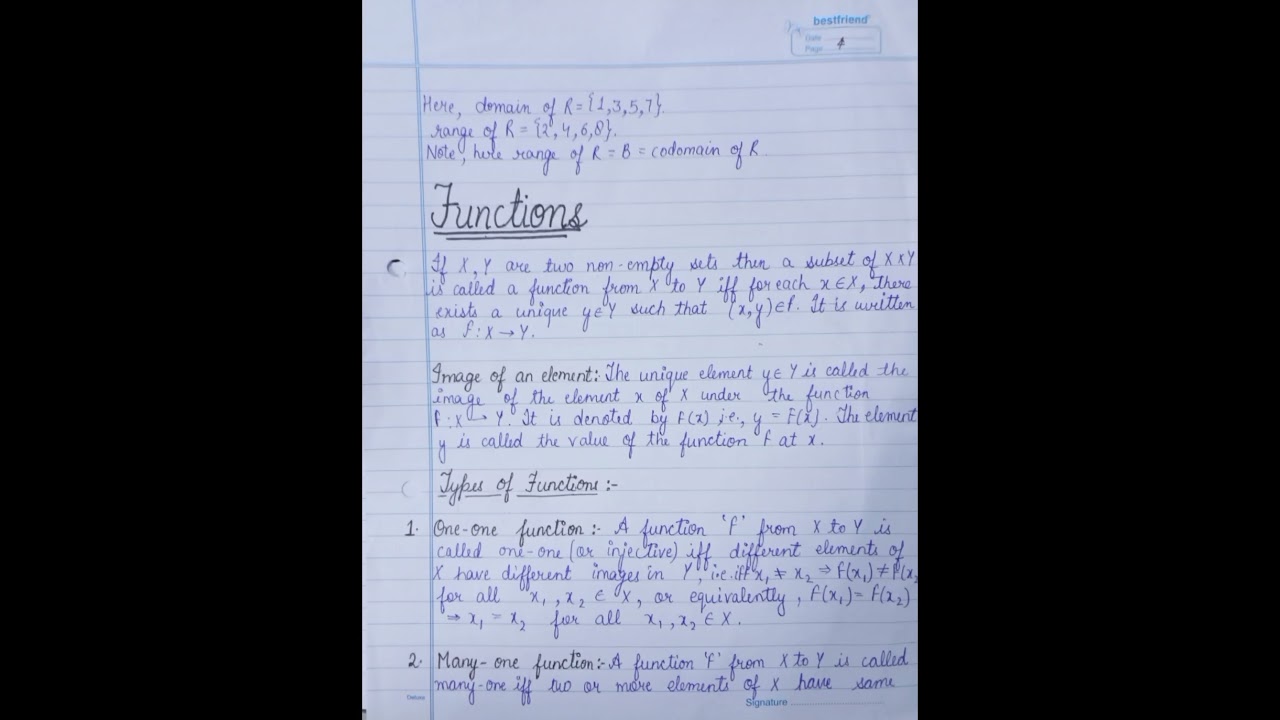 bestfriend
Date
Page 4
Here, domain of R = {1,3,5,7}.
range of R = {2,4,6,8}.
Note, here range of R = B = codomain of R
Functions
If X, Y are two non-empty sets then a subset of X×Y
is called a function from X to Y iff for each x∈X, there
exists a unique y∈Y such that (x,y)∈f. It is written
as f: X → Y.
Image of an element:- The unique element y∈Y is called the
image of the element x of X under the function
f: X → Y. It is denoted by f(x) i.e., y = f(x). The element
y is called the value of the function f at x.
Types of Functions :-
1. One-one function :- A function 'f' from X to Y is
called one-one (or injective) iff different elements of
X have different images in Y, i.e. iff x₁ ≠ x₂ ⇒ f(x₁) ≠ f(x₂
for all x₁, x₂ ∈ X, or equivalently, f(x₁) = f(x₂)
⇒ x₁ = x₂ for all x₁, x₂ ∈ X.
2. Many-one function:- A function 'f' from X to Y is called
many-one iff two or more elements of X have same
Signature